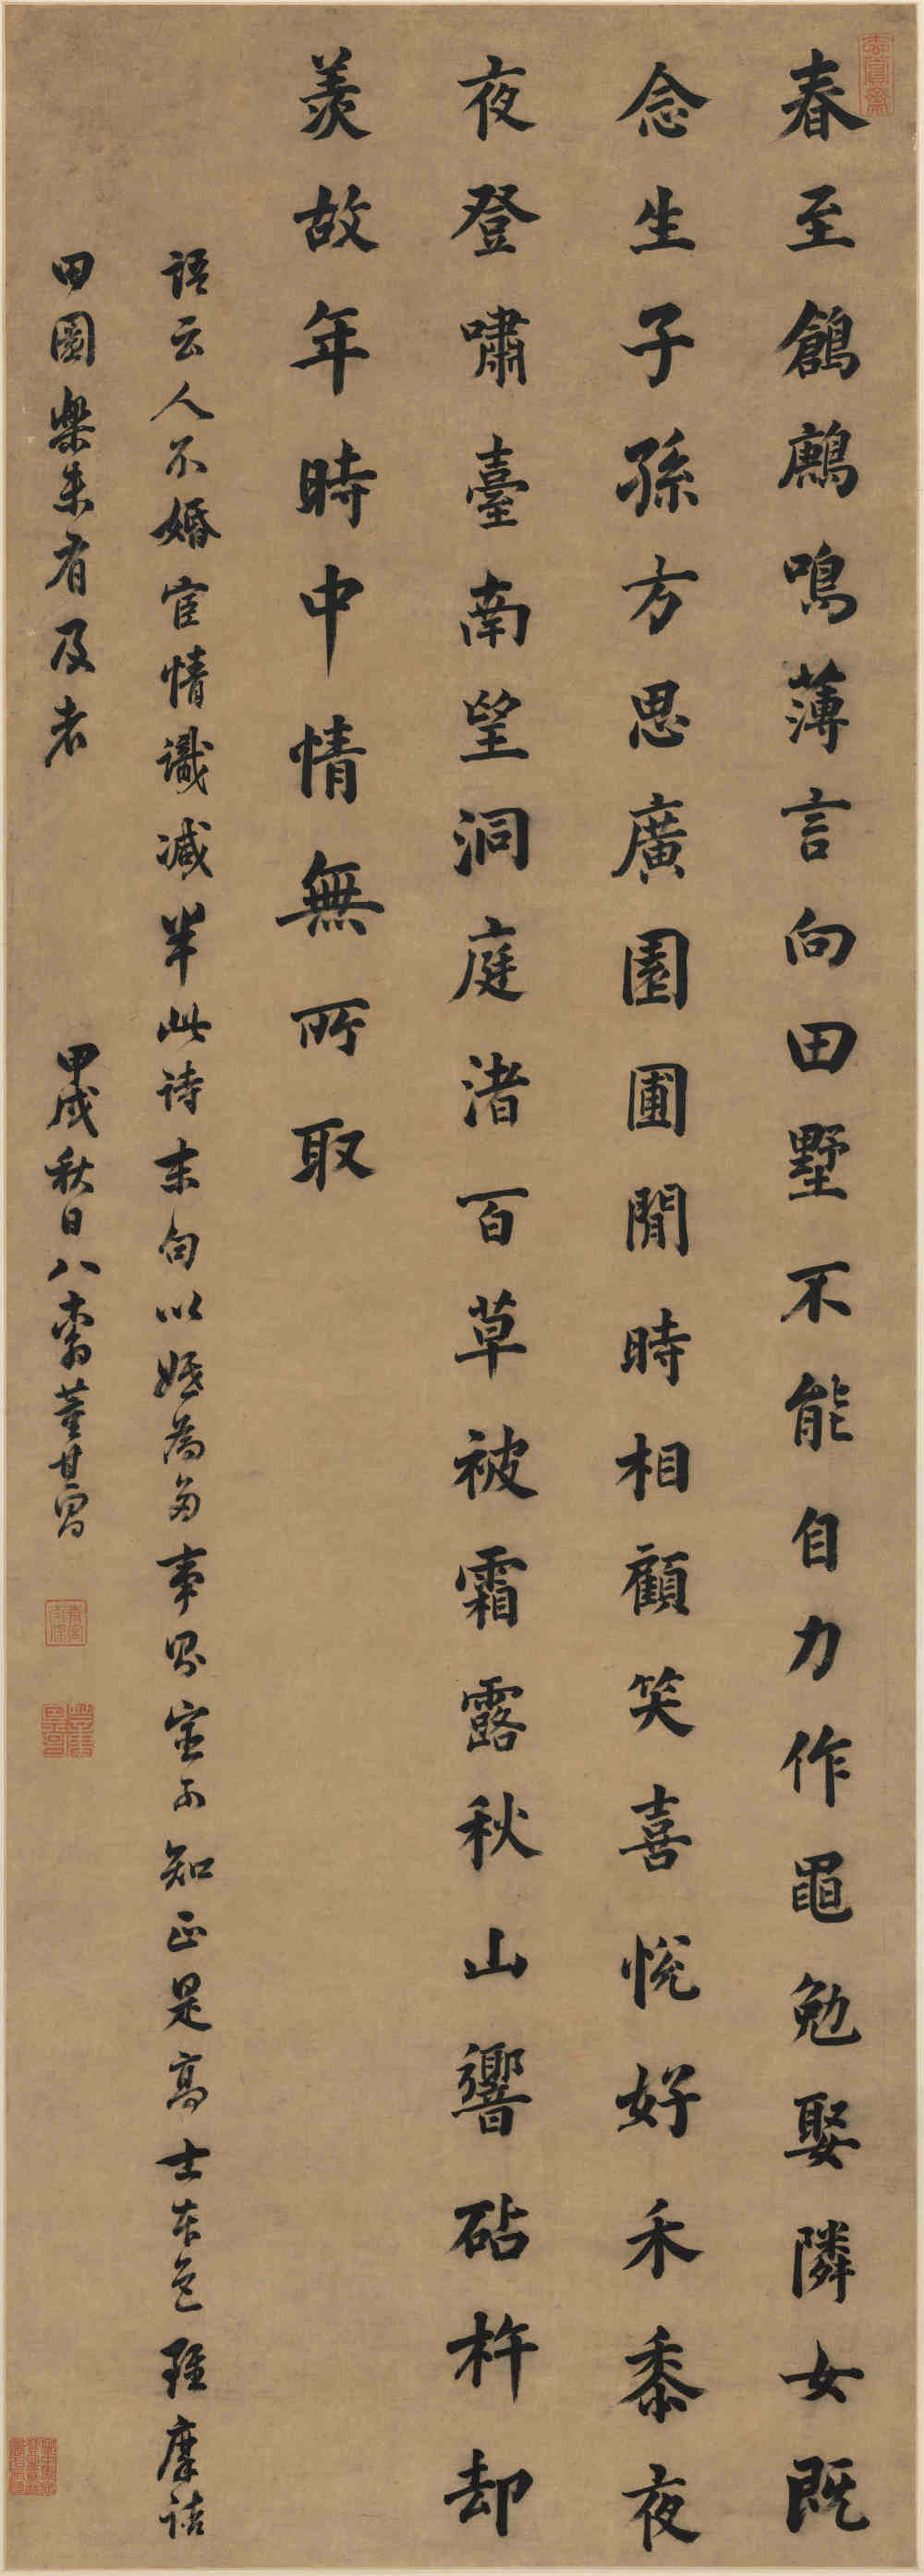 春至鶬鶊鳴薄言向田墅不能自力作黽勉娶隣女既
念生子孫方思廣園圃閒時相顧笑喜悅好禾黍夜
夜登嘯臺南望洞庭渚百草被霜露秋山響砧杵却
羨故年時中情無所取
語云人不婚宦情識減半此詩末句以婚為多事故實不知正是高士本色雖摩詰
田園樂未有及者 甲戌秋日八十翁董其昌
玄賞齋